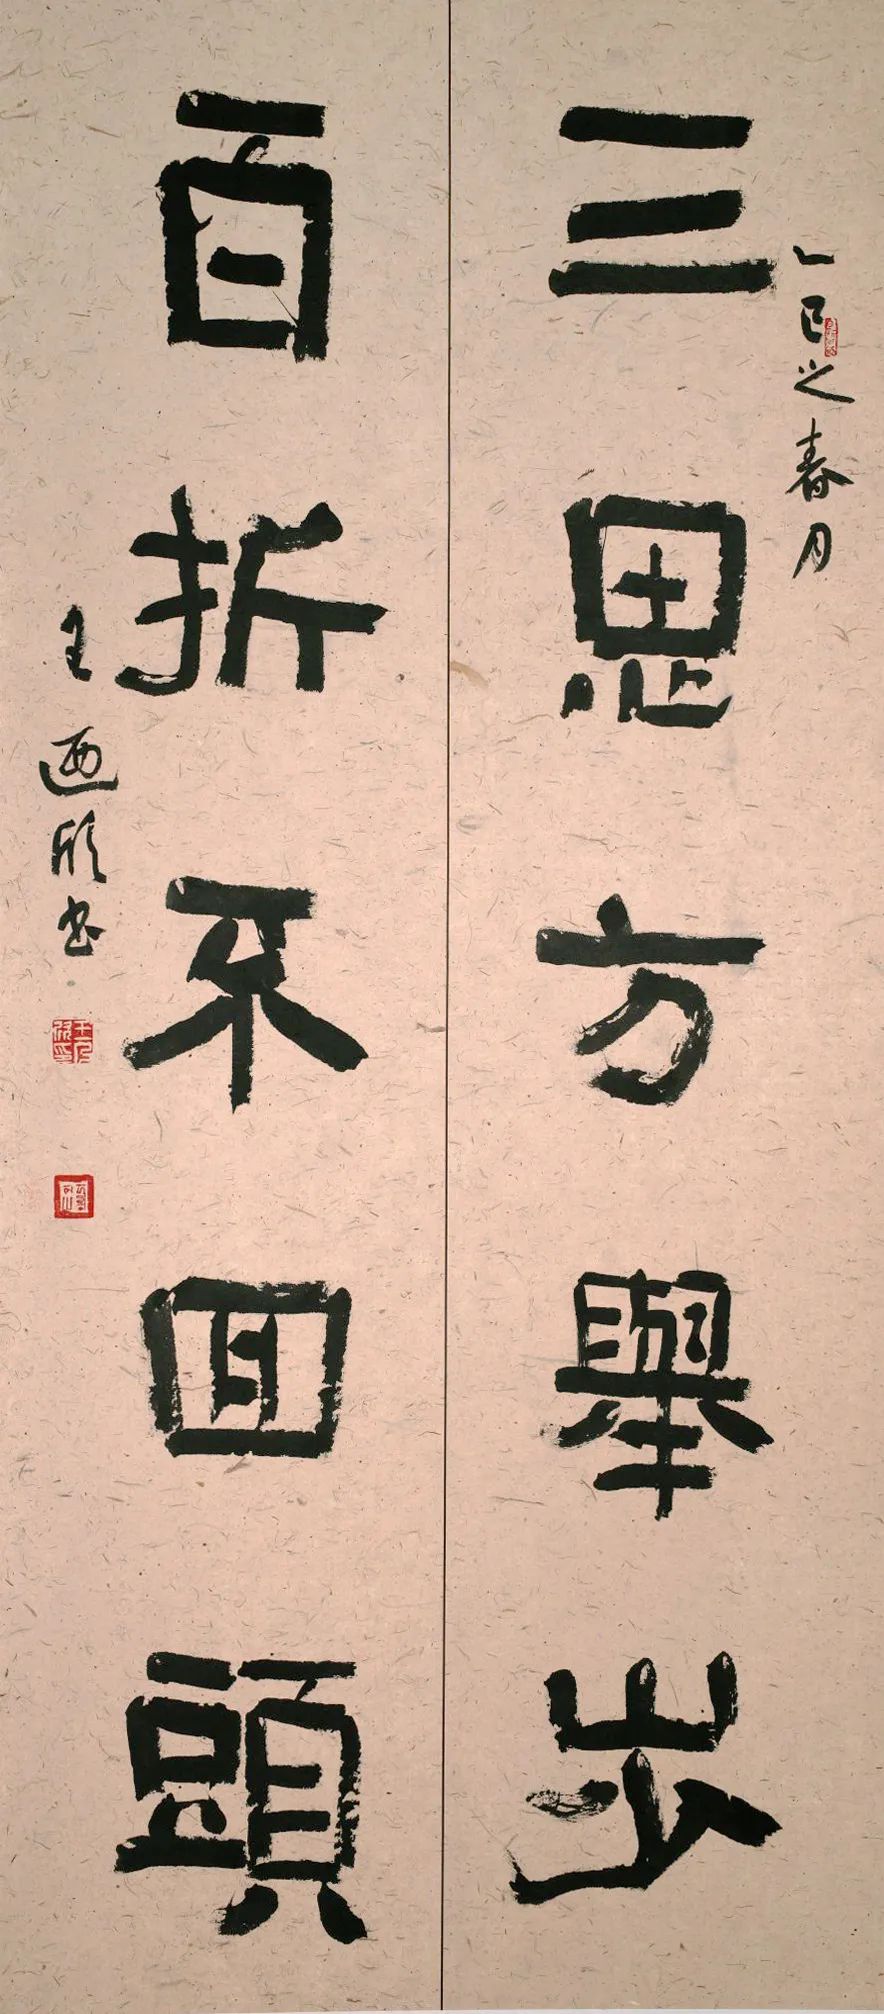 乙巳之春月
三思方舉步
百折不回頭
王迺欣书